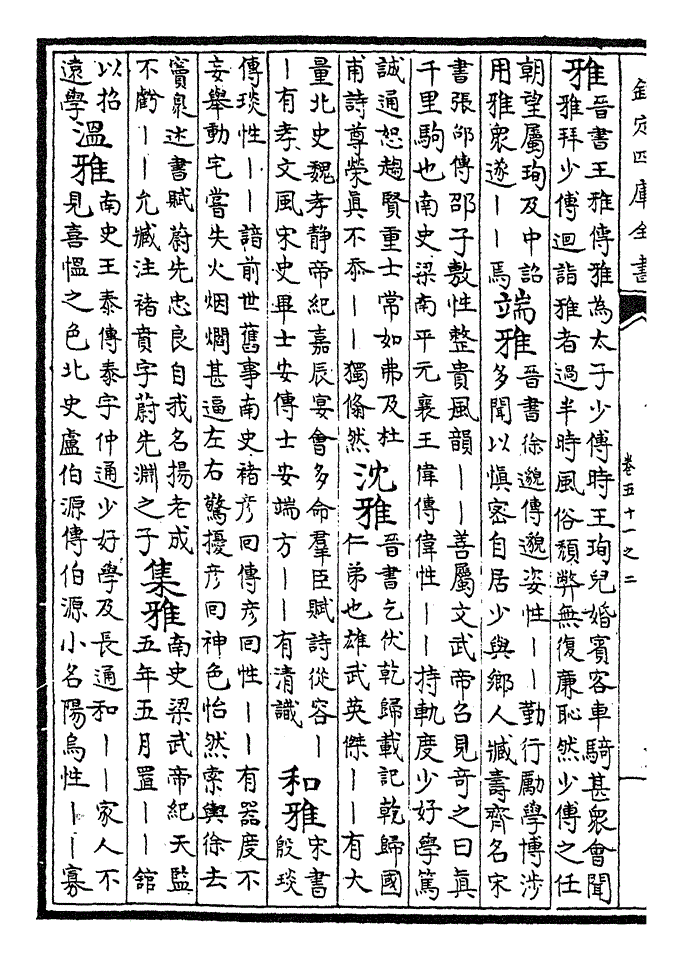 欽定四庫全書
卷五十一之二
雅
晉書王雅傳雅為太子少傅時王珣兒婚賓客車騎甚衆會聞
雅拜少傅迴詣雅者過半時風俗頹弊無復廉恥然少傅之任
朝望屬珣及中詔
用雅衆遂丨丨焉
端雅
晉書徐邈傳邈姿性丨丨勤行勵學博涉
多聞以慎密自居少與鄉人臧壽齊名宋
書張邵傳邵子敷性整貴風韻丨丨善屬文武帝召見奇之曰真
千里駒也南史梁南平元襄王偉傳偉性丨丨持軌度少好學篤
誠通恕趨賢重士常如弗及杜
甫詩尊榮真不忝丨丨獨翛然
沈雅
晉書乞伏乾歸載記乾歸國
仁弟也雄武英傑丨丨有大
量北史魏孝静帝紀嘉辰宴會多命羣臣賦詩從容丨
丨有孝文風宋史畢士安傳士安端方丨丨有清識
和雅
宋書
殷琰
傳琰性丨丨諳前世舊事南史褚彦回傳彦回性丨丨有器度不
妄舉動宅嘗失火烟爓甚逼左右驚擾彦回神色怡然索輿徐去
竇臮述書賦蔚先忠良自我名揚老成
不虧丨丨允臧注褚賁字蔚先淵之子
集雅
南史梁武帝紀天監
五年五月置丨丨館
以招
遠學
溫雅
南史王泰傳泰字仲通少好學及長通和丨丨家人不
見喜愠之色北史盧伯源傳伯源小名陽烏性丨丨寡